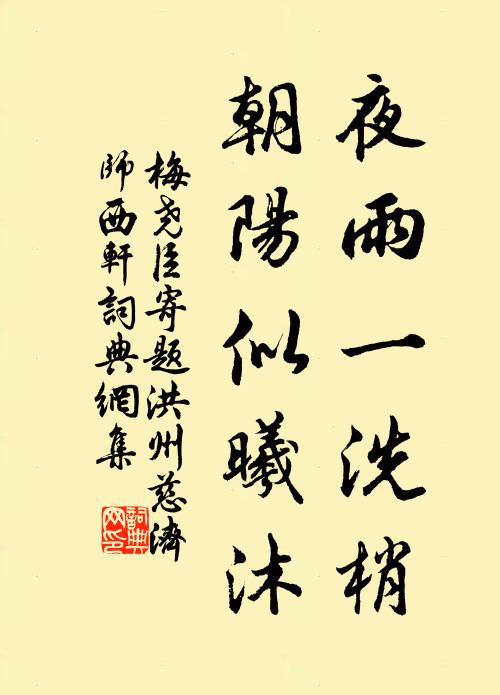 夜雨一洗梢
朝陽似曦沐
梅尧臣寄题洪州慈濟
師西軒詞典網集
詞典
网印